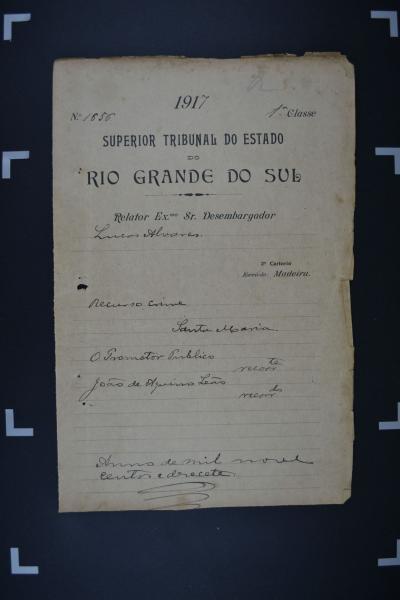 1917
Nº 1656 1ª Classe
SUPERIOR TRIBUNAL DO ESTADO
DO
RIO GRANDE DO SUL
Relator Ex.mo Sr. Desembargador
Lucas Alvares.
2º Cartorio
Escrivão Madeira.
Recurso crime
Santa Maria
O Promotor Publico
recorrte
João de Aquino Leão
recorrdo
Anno de mil novel
centos e desecete.